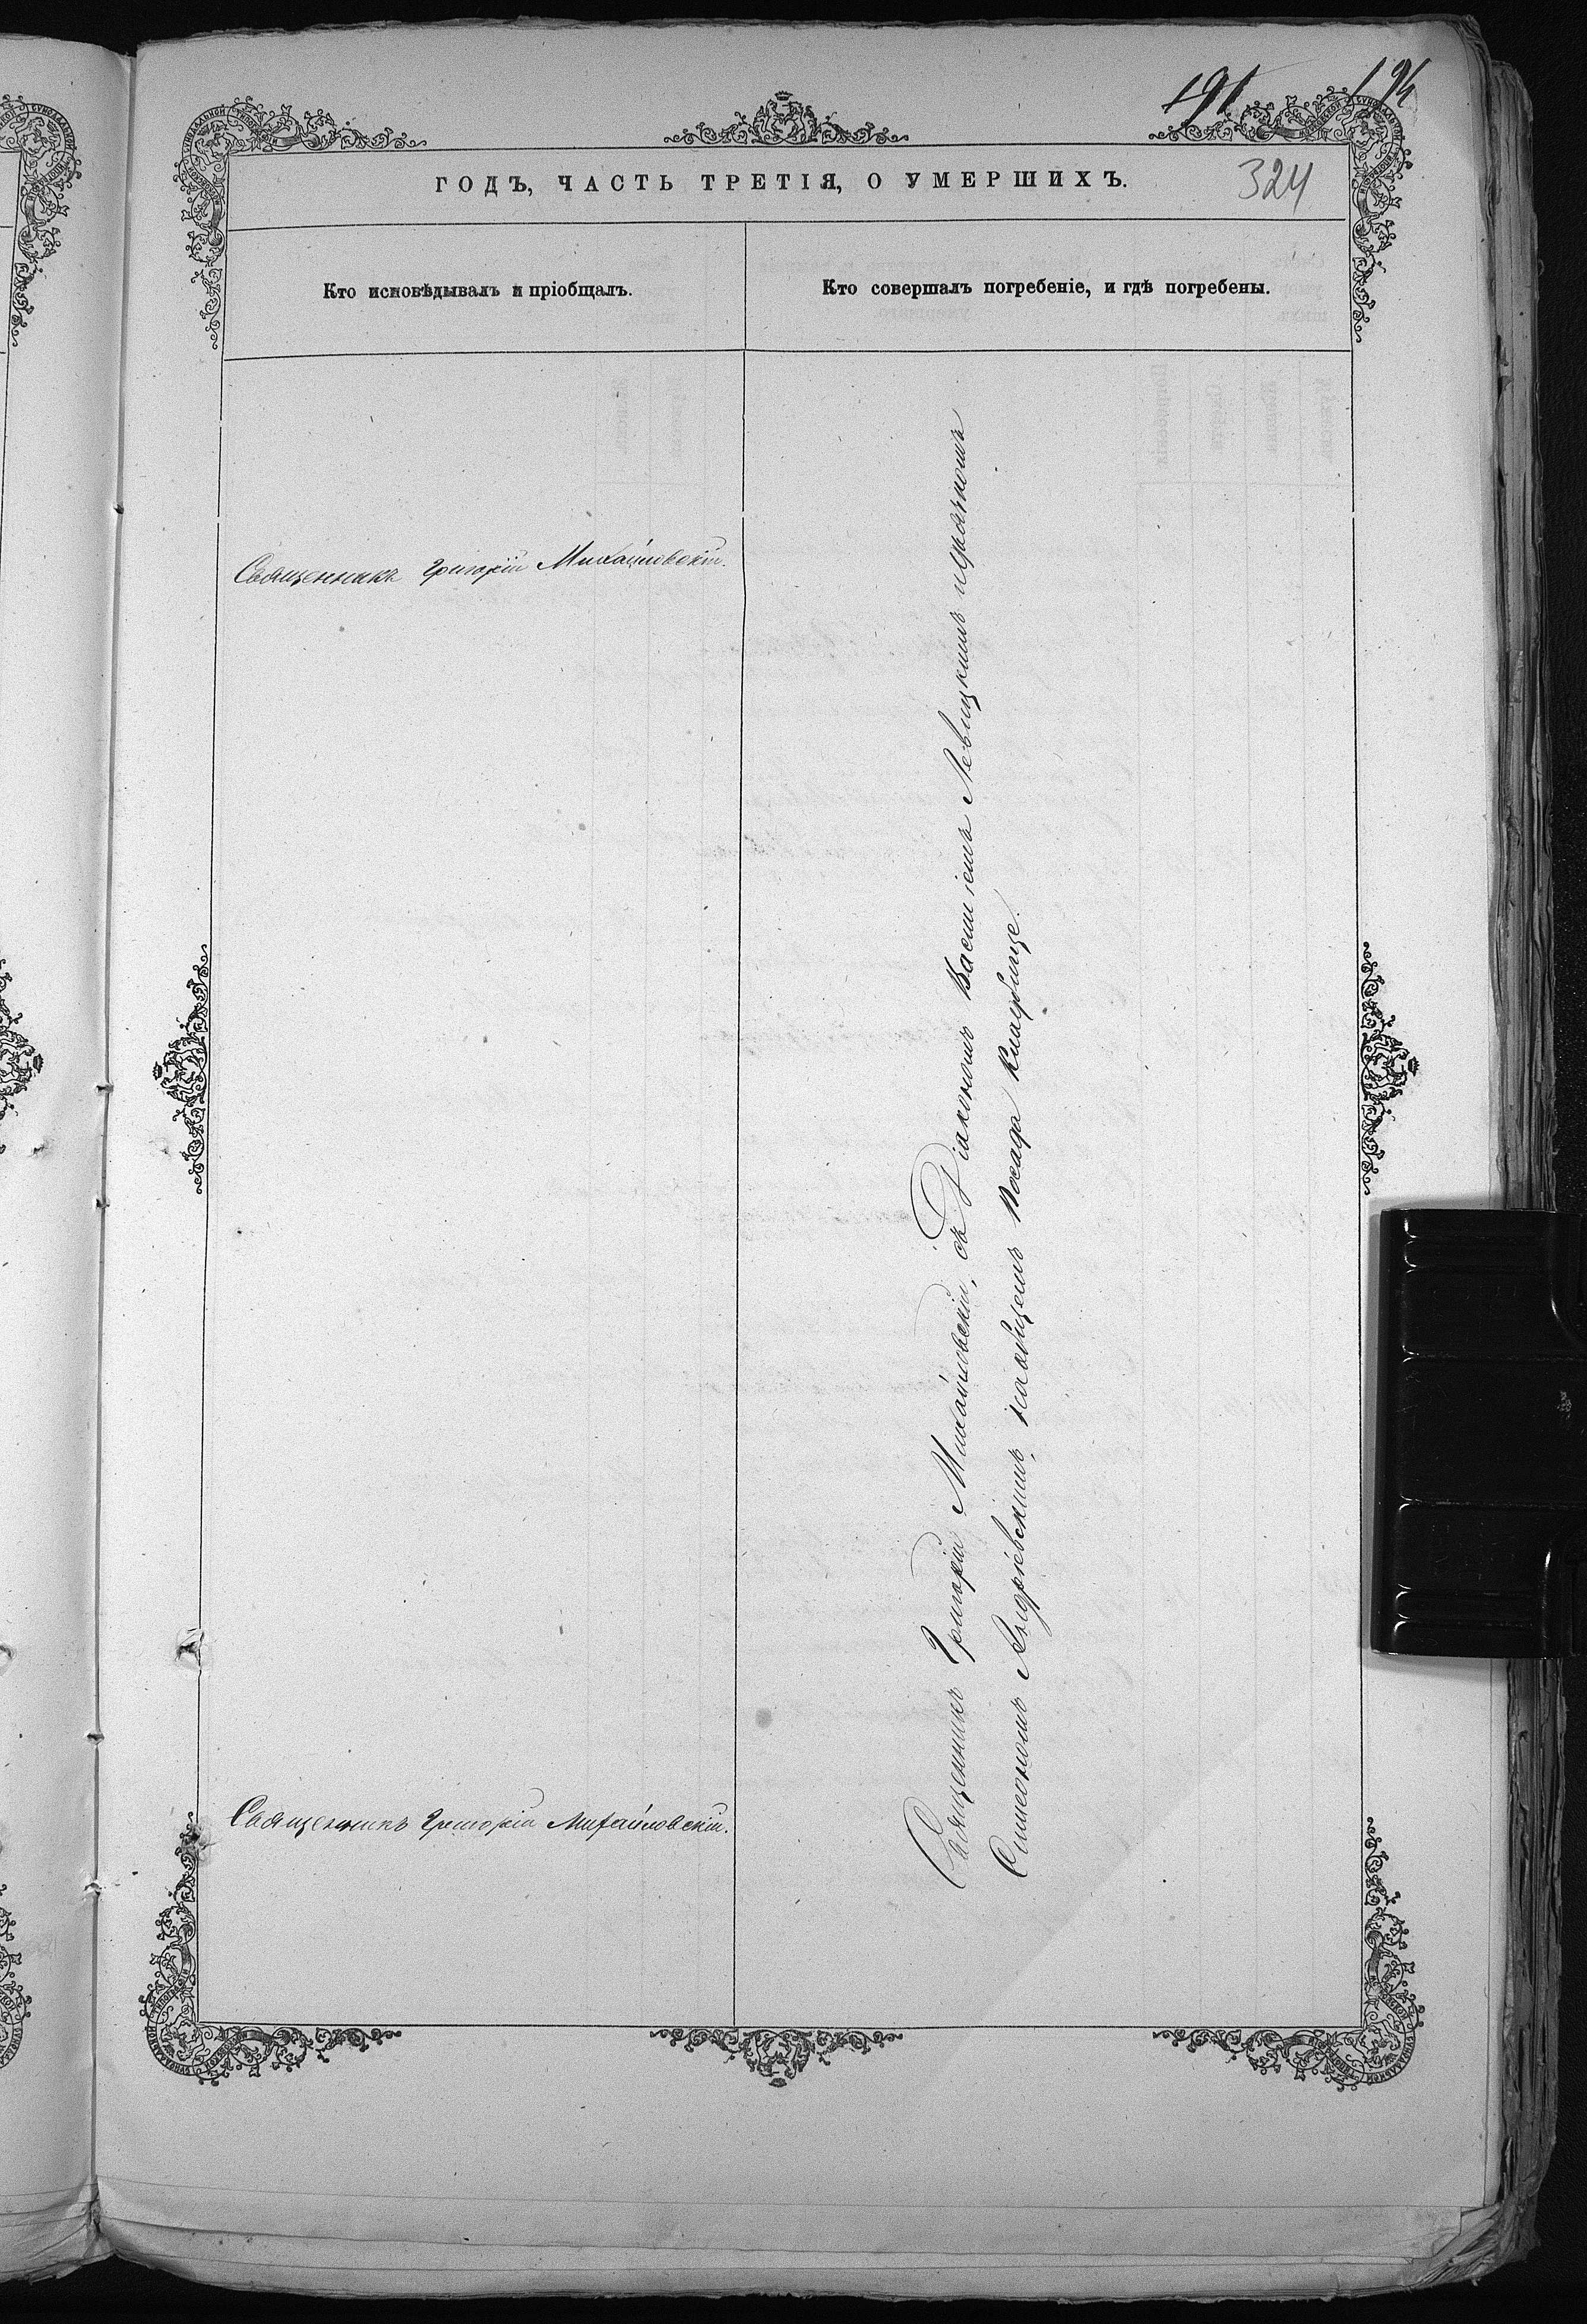 191 194
ГОДЪ, ЧАСТЬ ТРЕТІЯ, О УМЕРШИХЪ.
324
Кто исповѣдывалъ и пріобщалъ.
Кто совершалъ погребеніе, и гдѣ погребены.
Священникъ Григорій Михайловскій.
Священникъ Григорій Михайловскій.
Священникъ Григорій Михайловскій, съ Діакономъ Василіемъ Левицкимъ
Симеономъ Андріевскимъ, на общемъ Посада кладбище.